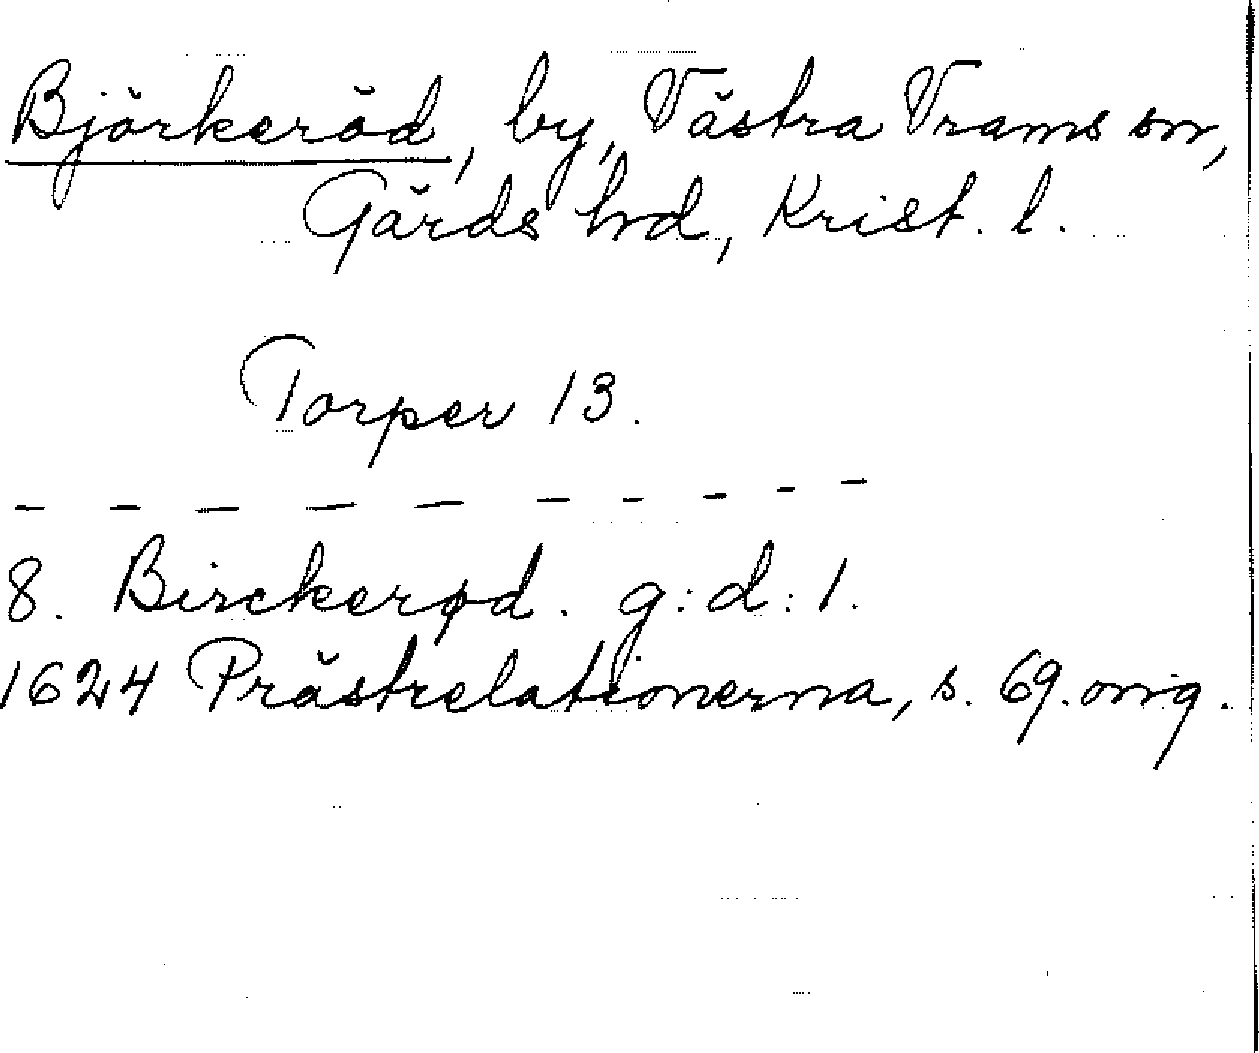 Björkeröd, by, Västra Vrams sn,
Gärds hd, Krist. l.
Torper 13.
- - - - - - - - -
8. Birckerød. g:d: 1.
1624 Prästrelationerna, s. 69. orig.